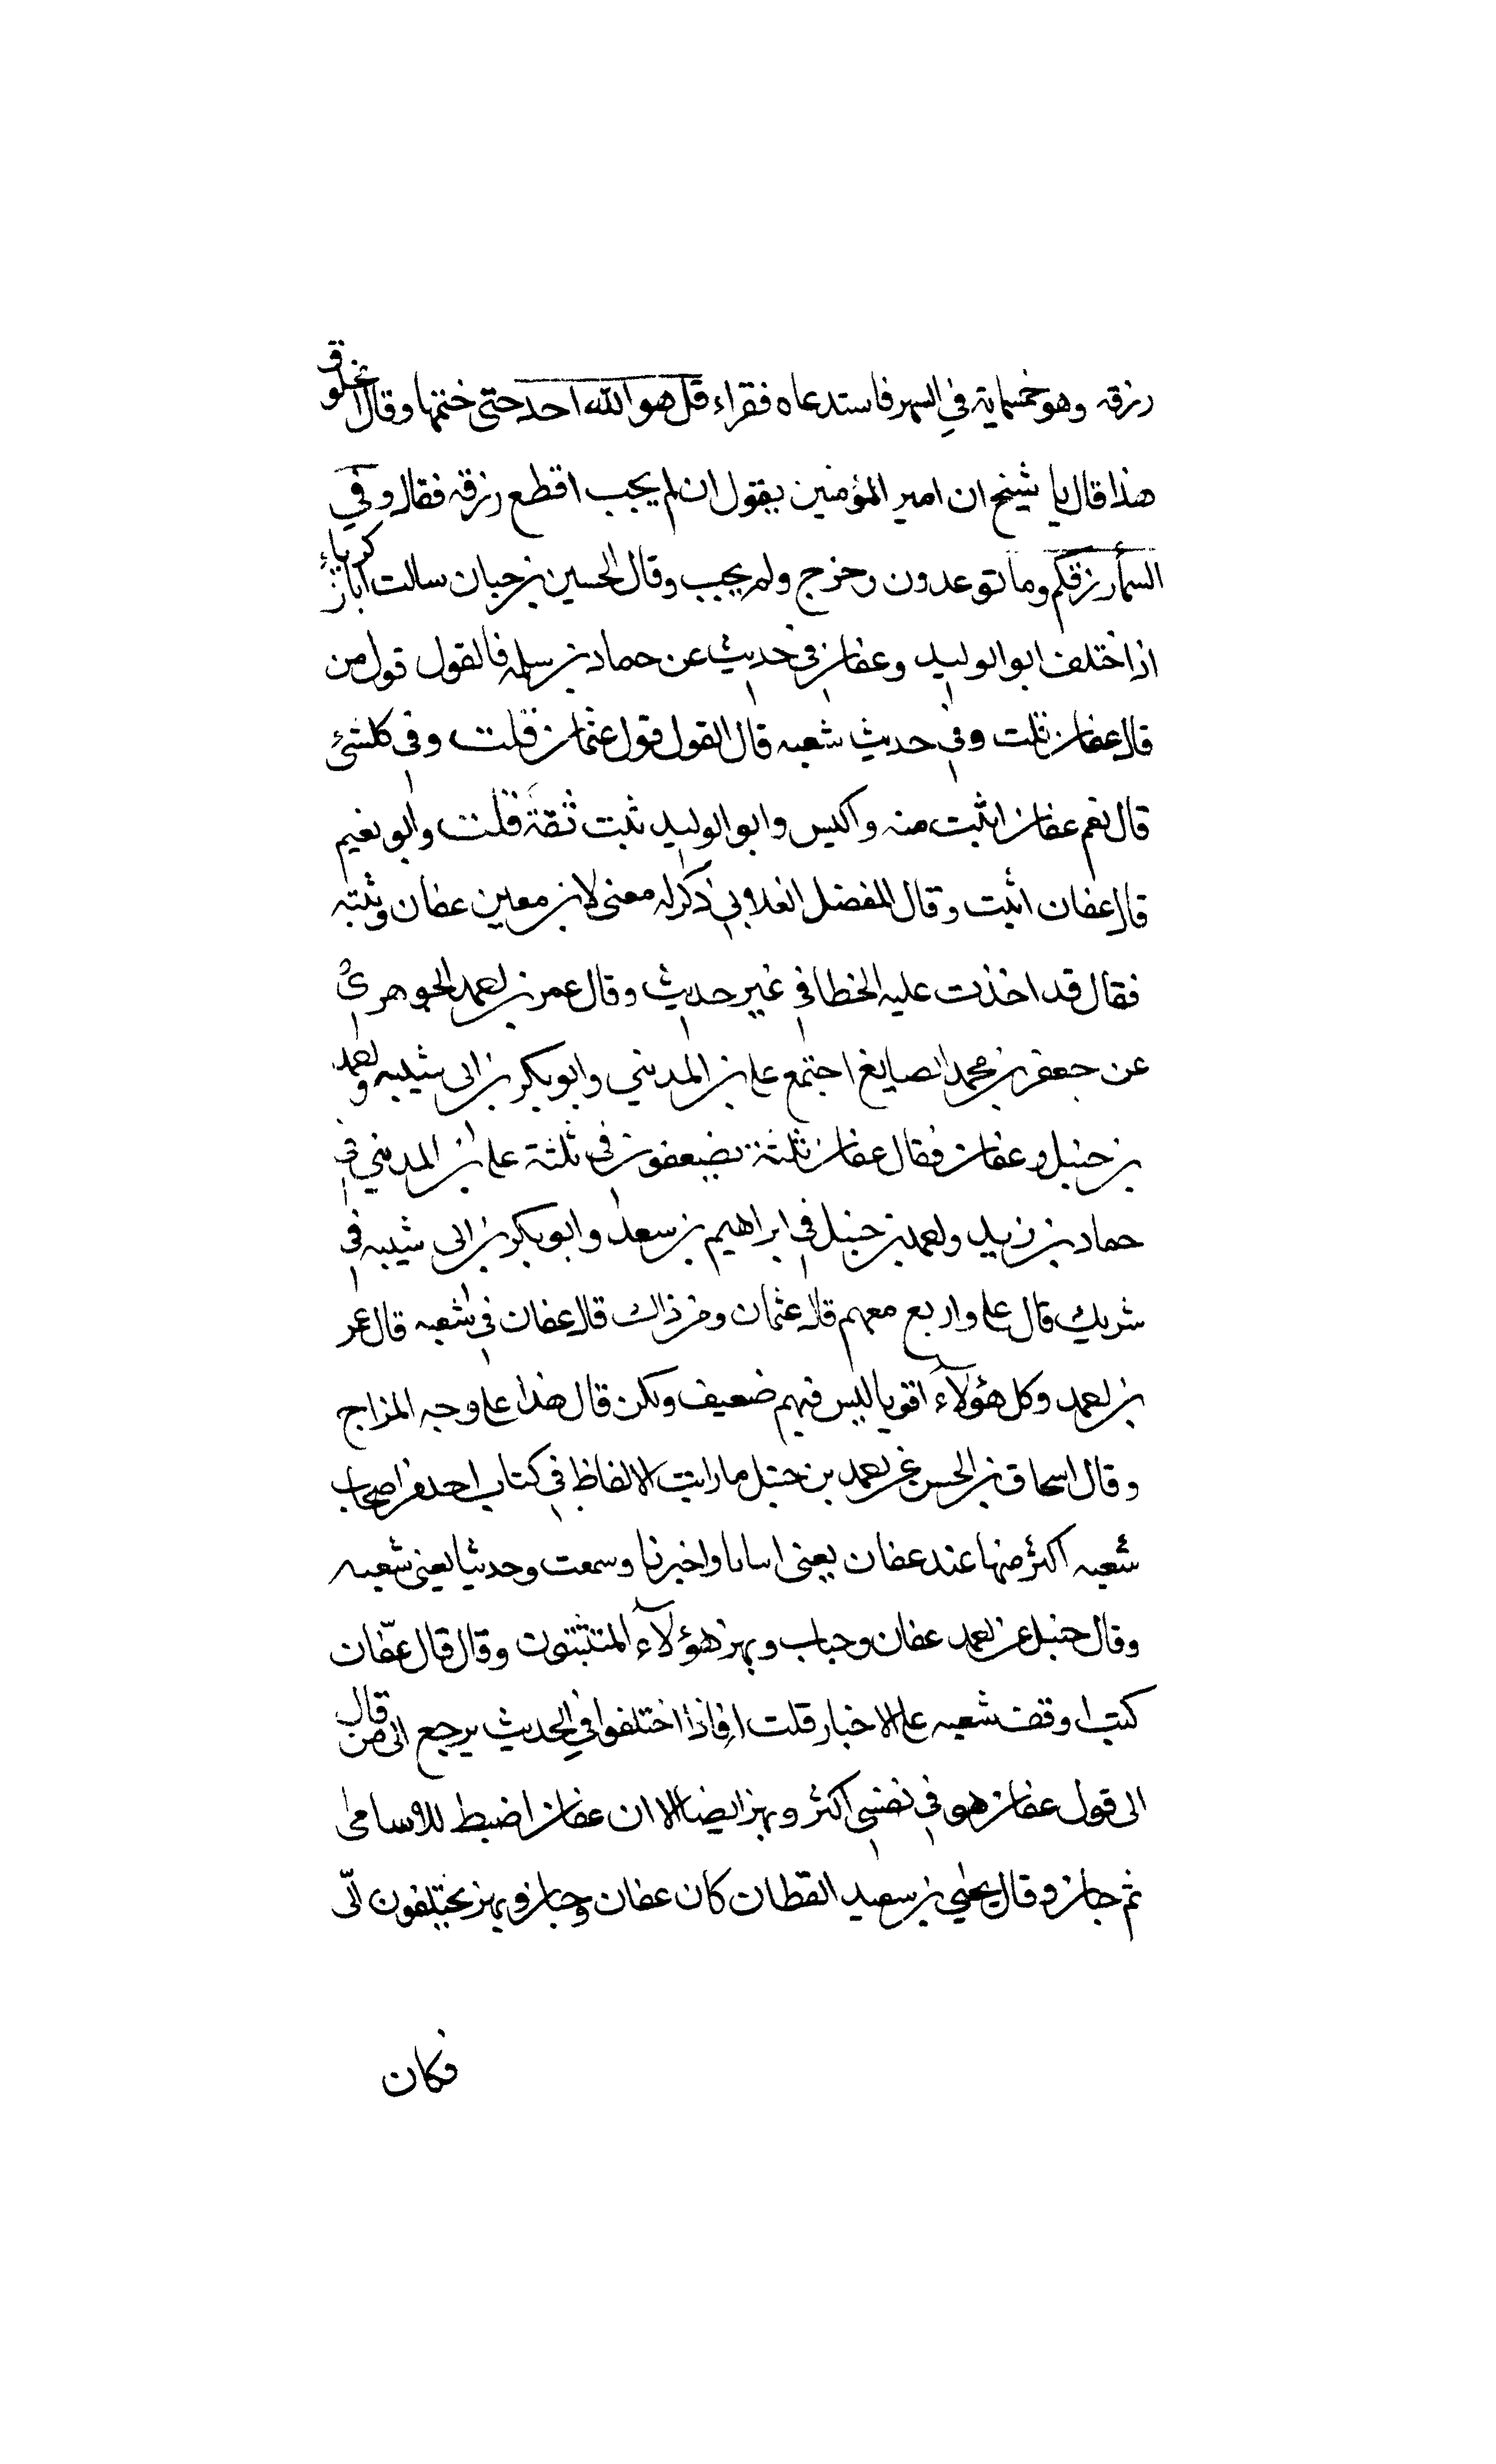 رزقه وهو خمسماية في الشهر فاستدعاه فقراء قل هو الله احد حتى ختمها وقال امخلوق
هذا قال يا شيخ ان امير المؤمنين يقول ان لم يجب اقطع رزقه فقال وفي
السماء رزقكم وما توعدون وخرج ولم يجب وقال الحسين بن حبان سالت ابا زكرياء
اذا اختلف ابو الوليد وعفان في حديث عن حماد بن سلمه فالقول قول من
قال عفان قلت وفي حديث شعبه قال القول قول عفان قلت وفي كل شئ
قال نعم عفان اثبت منه واكيس وابو الوليد ثبت ثقة قلت وابو نعيم
قال عفان اثبت وقال المفضل الغلابي ذكر له معنى لابن معين عفان وثبته
فقال قد اخذت عليه الخطا في غير حديث وقال عمر بن احمد الجوهري
عن جعفر بن محمد الصايغ اجتمع علي بن المديني وابو بكر بن ابى شيبه واحمد
بن حنبل وعفان فقال عفان ثلثة يضعفون في ثلثة علي بن المديني في
حماد بن زيد واحمد بن حنبل في ابراهيم بن سعد وابو بكر بن ابى شيبه في
شريك قال علي واربع معهم قال عثمان ومن ذاك قال عفان في شعبه قال عمر
بن احمد وكل هؤلآء اقويا ليس فيهم ضعيف ولكن قال هذا علي وجه المزاج
وقال اسحاق بن الحسن عن احمد بن حنبل ما رايت الالفاظ في كتاب احد من اصحاب
شعبه اكثر منها عند عفان يعنى انبانا واخبرنا وسمعت وحدثنا يعنى شعبه
وقال حنبل عن احمد عفان وحباب وبهز هؤلآء المتثبتون وقال قال عفّان
كنت اوقف شعبه علي الاخبار قلت افاذا اختلفوا في الحديث يرجع الى من قال
الى قول عفان هو في نفسي اكثر وبهز ايضا الا ان عفان اضبط للاسامى
ثم حبان وقال يحيي بن سعيد القطان كان عفان وحبان وبهز يختلفون الىّ
فكان